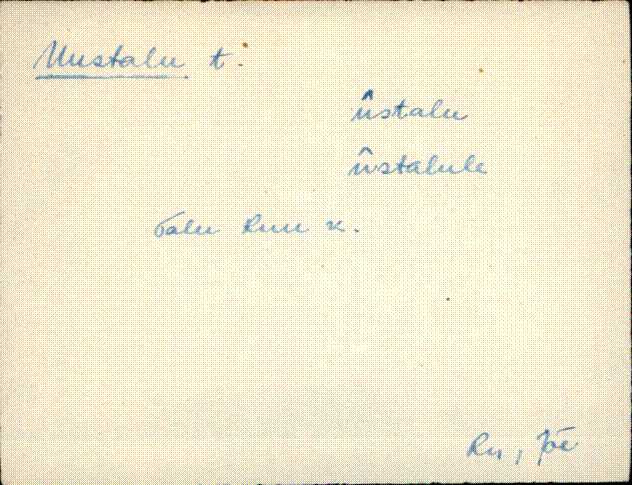 Uustalu t.
ûstalu
ûstalule
Talu Ruu k.
Ru, Jõe